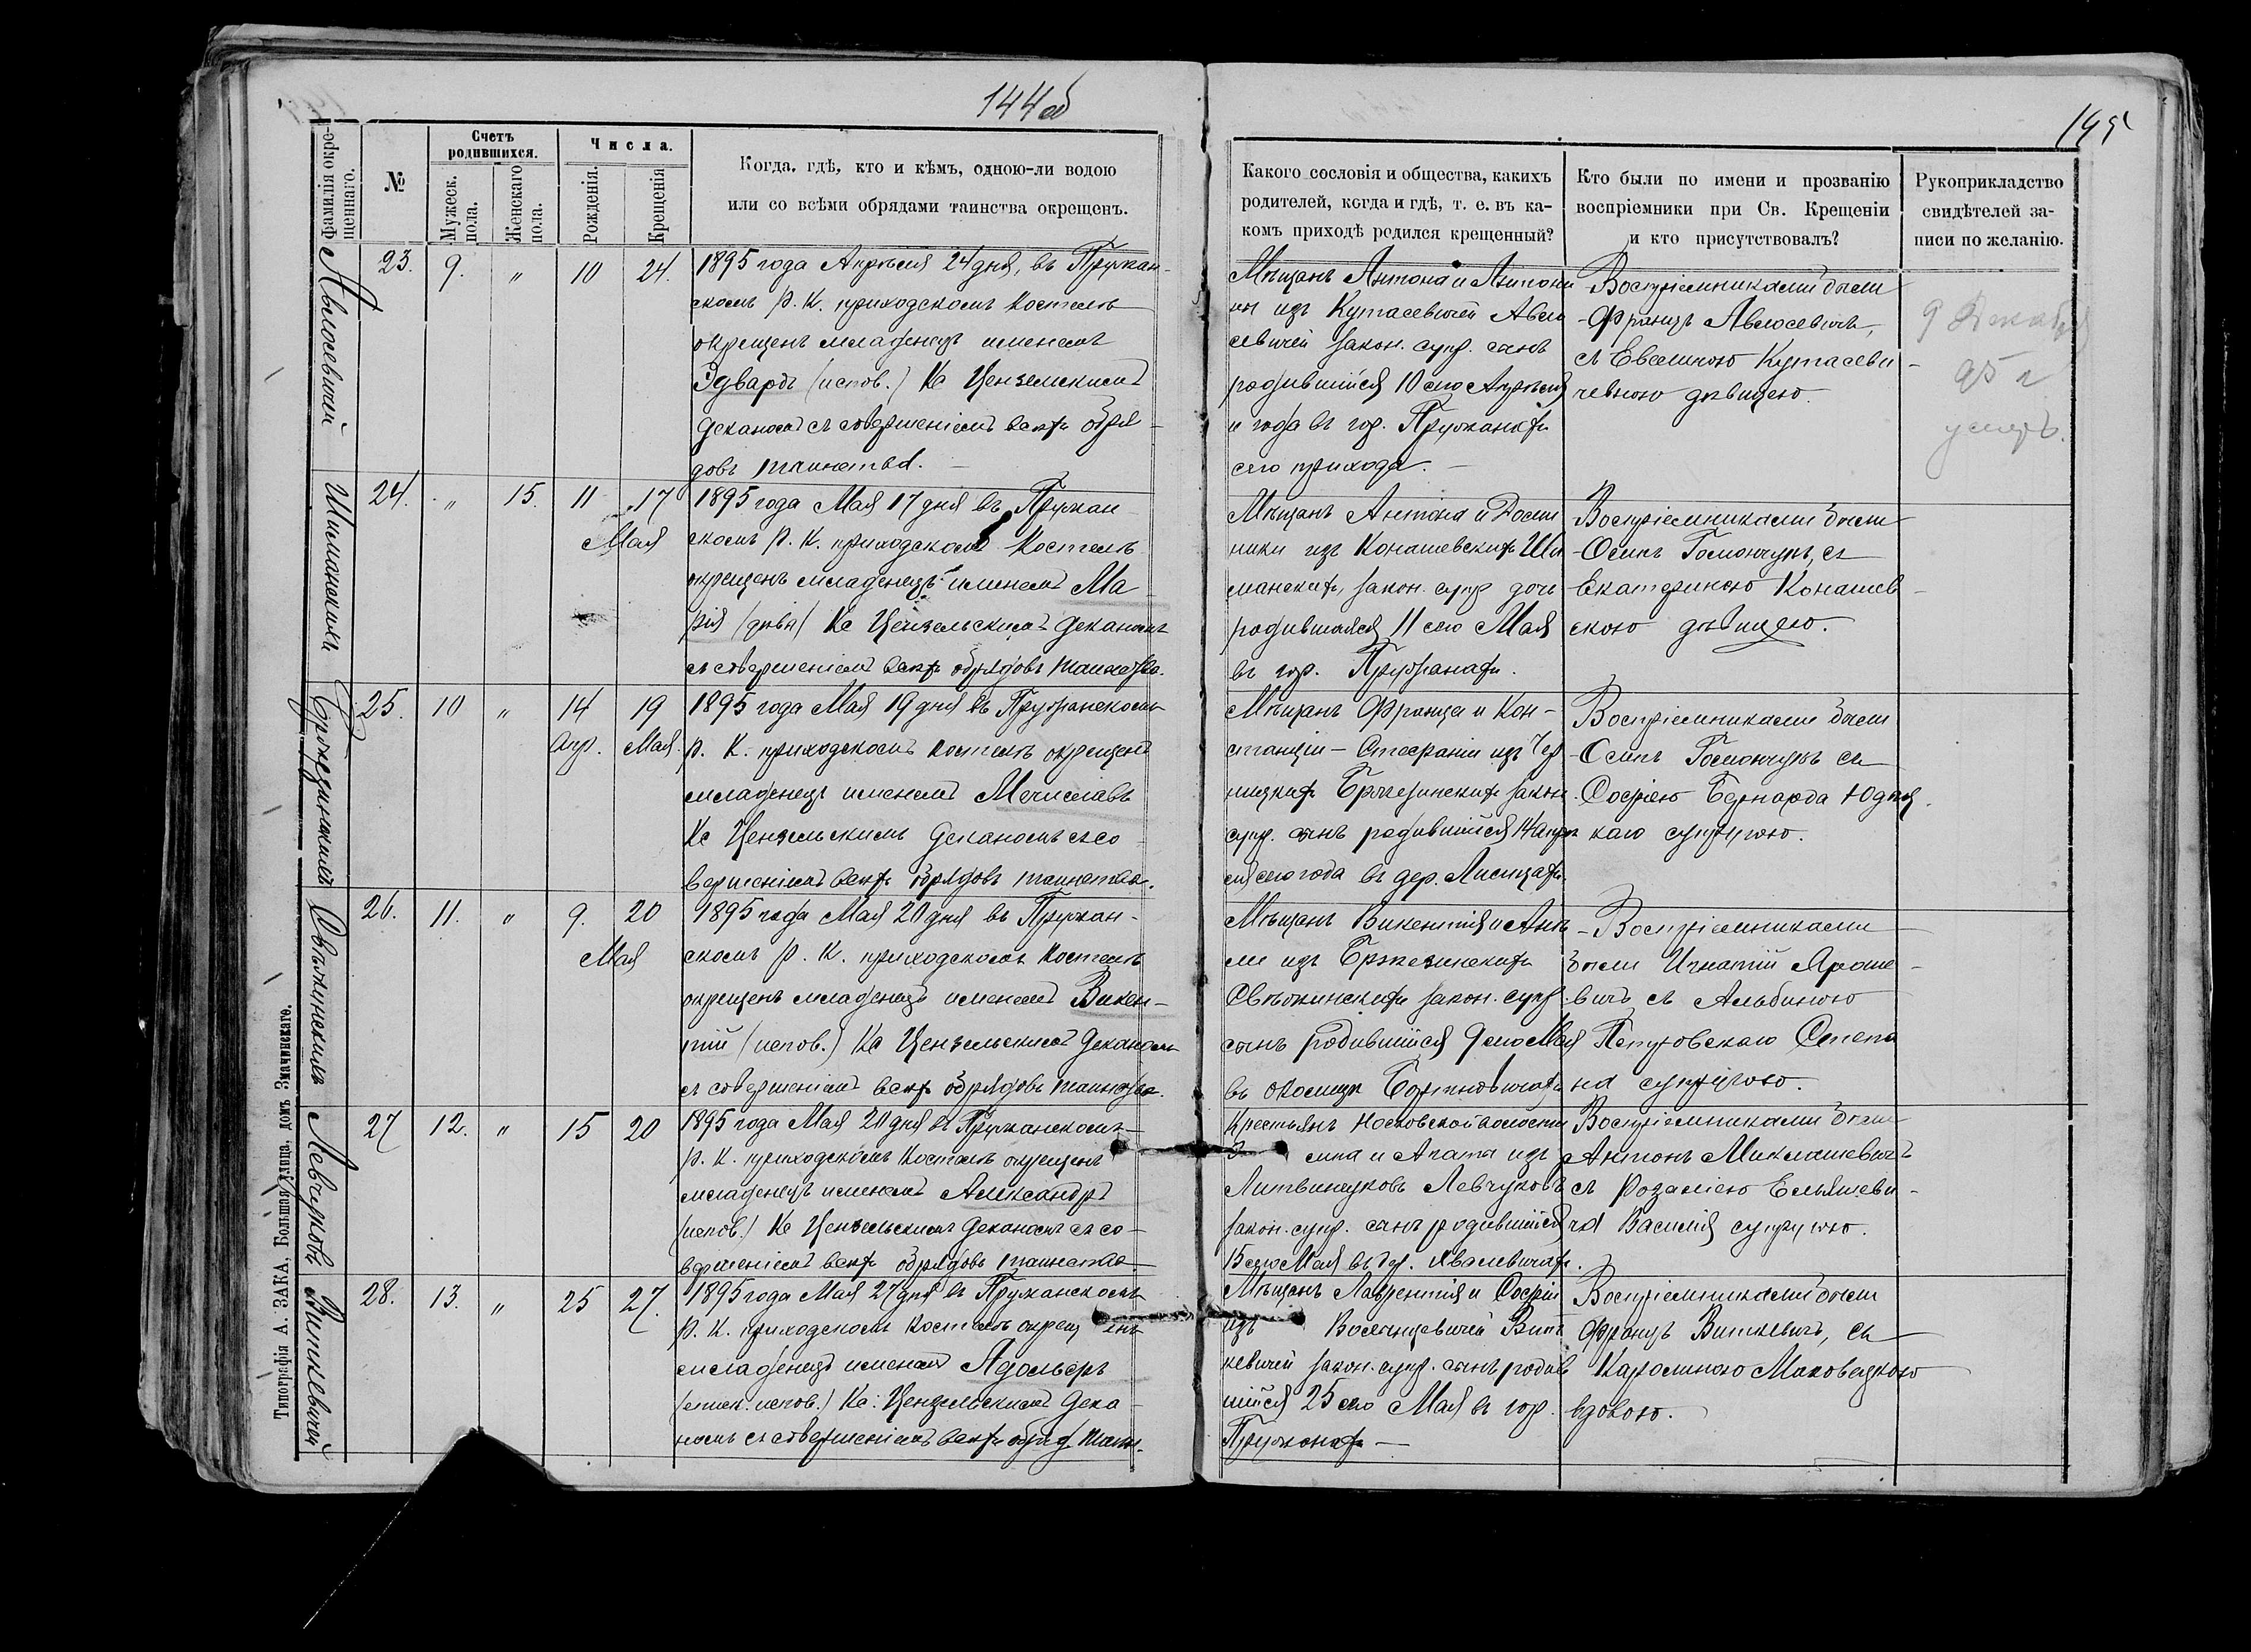 144об
145
Фамилія ново-крещеннаго.
№
Счетъ родившихся.
Мужеск. пола.
Женскаго пола.
Числа.
Рожденія.
Крещенія
Когда, гдѣ, кто и кѣмъ, одною-ли водою
или со всѣми обрядами таинства окрещенъ.
Какого сословія и общества, какихъ
родителей, когда и гдѣ, т. е. въ ка-
комъ приходѣ родился крещенный?
Кто были по имени и прозванію
воспріемники при Св. Крещеніи
и кто присутствовалъ?
Рукоприкладство
свидѣтелей за-
писи по желанію.
23. 9. " 10 24.
1895 года Апрѣля 24 дня, въ Пружан-
скомъ Р. К. приходскомъ костелѣ
окрещенъ младенецъ именемъ
Эдвардъ (испов.) Кс Цензельскимъ
деканомъ съ совершеніемъ всѣхъ обря-
довъ таинства. —
Мѣщанъ Антона и Антони
ны изъ Кутасевичей Авло
севичей закон. супр. сынъ
родившійся 10 сего Апрѣля
и года въ гор. Пружанахъ
сего прихода. —
Воспріемниками были
Францъ Авлосевичъ,
съ Евелиною Кутасеви-
чевною дѣвицею.
9 Декабря
95 г
умеръ.
Шиманскихъ
24. " 15. 11 17
Мая
1895 года Мая 17 дня въ Пружан
скомъ Р. К. приходскомъ Костелѣ
окрещенъ младенецъ именемъ Ма-
рія (дѣва) Кс Цензельскимъ деканомъ
съ совершеніемъ всѣхъ обрядовъ таинства.
Мѣщанъ Антона и Доми
ники изъ Конашевскихъ Ши
манскихъ, закон. супр дочь
родившаяся 11 сего Мая
въ гор. Пружанахъ.
Воспріемниками были
Осипъ Гомончукъ, съ
Екатериною Конашев-
скою дѣвицею.
25. 10 " 14 19
Апр. Мая.
1895 года Мая 19 дня въ Пружанскомъ
Р. К. приходскомъ костелѣ окрещенъ
младенецъ именемъ Мечиславъ
Кс Цензельскимъ деканомъ съ со-
вершеніемъ всѣхъ обрядовъ таинства.
Мѣщанъ Франца и Кон-
станціи — Стефаніи изъ Чер
ницкихъ Бржезинскихъ закон.
супр. сынъ родившійся 14 апрѣ
ля сего года въ дер. Лисицахъ.
Воспріемниками были
Осипъ Гомончукъ съ
Софіею Бернарда
каго супругою.
Свѣжинскихъ
26. 11. " 9. 20
Мая
1895 года Мая 20 дня въ Пружан-
скомъ Р. К. приходскомъ Костелѣ
окрещенъ младенецъ именемъ Викен-
тій (испов.) Кс Цензельскимъ деканомъ
съ совершеніемъ всѣхъ обрядовъ таинства.
Мѣщанъ Викентія и Анѣ
ли изъ Бржезинскихъ
Свѣжинскихъ закон. супр.
сынъ родившійся 9 сего Мая
въ околицѣ
Воспріемниками
были Игнатій Яроше-
вичъ съ Альбиною
Петровскаго Степа
на супругою.
Левчуковъ
27 12. " 15 20
1895 года Мая 20 дня въ Пружанскомъ
Р. К. приходскомъ Костелѣ окрещенъ
младенецъ именемъ Александръ
(испов.) Кс Цензельскимъ деканомъ съ со-
вершеніемъ всѣхъ обрядовъ таинства
Крестьянъ Носковской волости
и Агата изъ
Литвинчуковъ Левчуковъ
закон. супр. сынъ родившійся
15 сего Мая въ дер.
Воспріемниками были
Антонъ Миклашевичъ
съ Розаліею Ельяшеви-
ча Василія супругою.
Виткевичей
28. 13. " 25 27.
1895 года Мая 27 дня въ Пружанскомъ
Р. К. приходскомъ костелѣ окрещенъ
младенецъ именемъ Адольфъ
(епис. испов.) Кс: Цензельскимъ дека-
номъ съ совершеніемъ всѣхъ обряд. таин.
Мѣщанъ Лаврентія и Софіи
изъ Волынцевичей Вит
кевичей закон. супр. сынъ родив
шійся 25 сего Мая въ гор.
Пружанахъ —
Воспріемниками были
Францъ Виткевичъ, съ
Каролиною Маковецкою
вдовою.
Типографія А. ЗАКА, Большая улица, домъ Значинскаго.